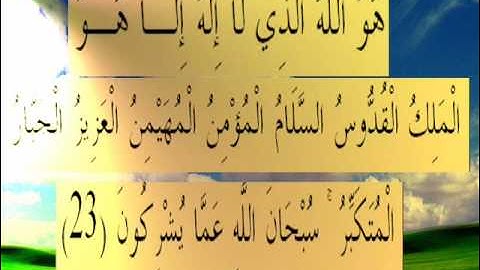 هُوَ اللَّهُ الَّذِي لَا إِلَٰهَ إِلَّا هُوَ
الْمَلِكُ الْقُدُّوسُ السَّلَامُ الْمُؤْمِنُ الْمُهَيْمِنُ الْعَزِيزُ الْجَبَّارُ
الْمُتَكَبِّرُ ۚ سُبْحَانَ اللَّهِ عَمَّا يُشْرِكُونَ (23)